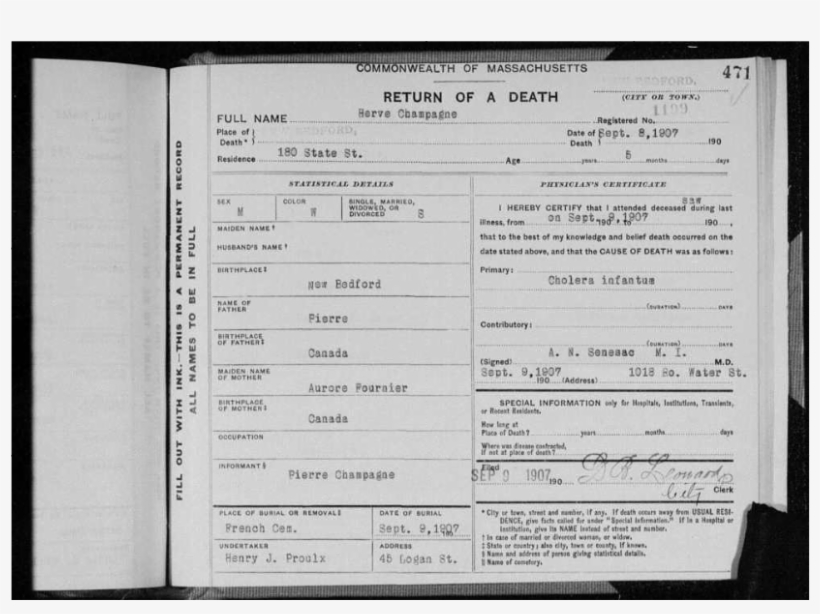 COMMONWEALTH OF MASSACHUSETTS
471
NEW BEDFORD,
RETURN OF A DEATH
(CITY OR TOWN.)
1199
FULL NAME Herve Champagne Registered No.
Place of Death* NEW BEDFORD, Date of Death Sept. 8,1907 190
Residence 180 State St. Age years 5 months days
FILL OUT WITH INK.—THIS IS A PERMANENT RECORD
ALL NAMES TO BE IN FULL
STATISTICAL DETAILS
SEX M
COLOR W
SINGLE, MARRIED, WIDOWED, OR DIVORCED S
MAIDEN NAME†
HUSBAND'S NAME†
BIRTHPLACE‡
New Bedford
NAME OF FATHER
Pierre
BIRTHPLACE OF FATHER‡
Canada
MAIDEN NAME OF MOTHER
Aurore Fournier
BIRTHPLACE OF MOTHER‡
Canada
OCCUPATION
INFORMANT§
Pierre Champagne
PLACE OF BURIAL OR REMOVAL‖
French Cem.
DATE OF BURIAL
Sept. 9,1907
UNDERTAKER
Henry J. Proulx
ADDRESS
45 Logan St.
PHYSICIAN'S CERTIFICATE
saw
I HEREBY CERTIFY that I attended deceased during last
illness, from on Sept. 9,1907 190 ,
that to the best of my knowledge and belief death occurred on the
date stated above, and that the CAUSE OF DEATH was as follows:
Primary:
Cholera infantum
(DURATION) DAYS
Contributory:
(DURATION) DAYS
(Signed) A. N. Senesac M. I. M.D.
Sept. 9,1907 190 (Address) 1018 So. Water St.
SPECIAL INFORMATION only for Hospitals, Institutions, Transients,
or Recent Residents.
How long at
Place of Death? years months days
Where was disease contracted,
if not at place of death?
Filed SEP 9 1907 190 Leonard
City Clerk
* City or town, street and number, if any. If death occurs away from USUAL RESI-
DENCE, give facts called for under "Special Information." If in a Hospital or
Institution, give its NAME instead of street and number.
† In case of married or divorced woman, or widow.
‡ State or country; also city, town or county, if known.
§ Name and address of person giving statistical details.
‖ Name of cemetery.